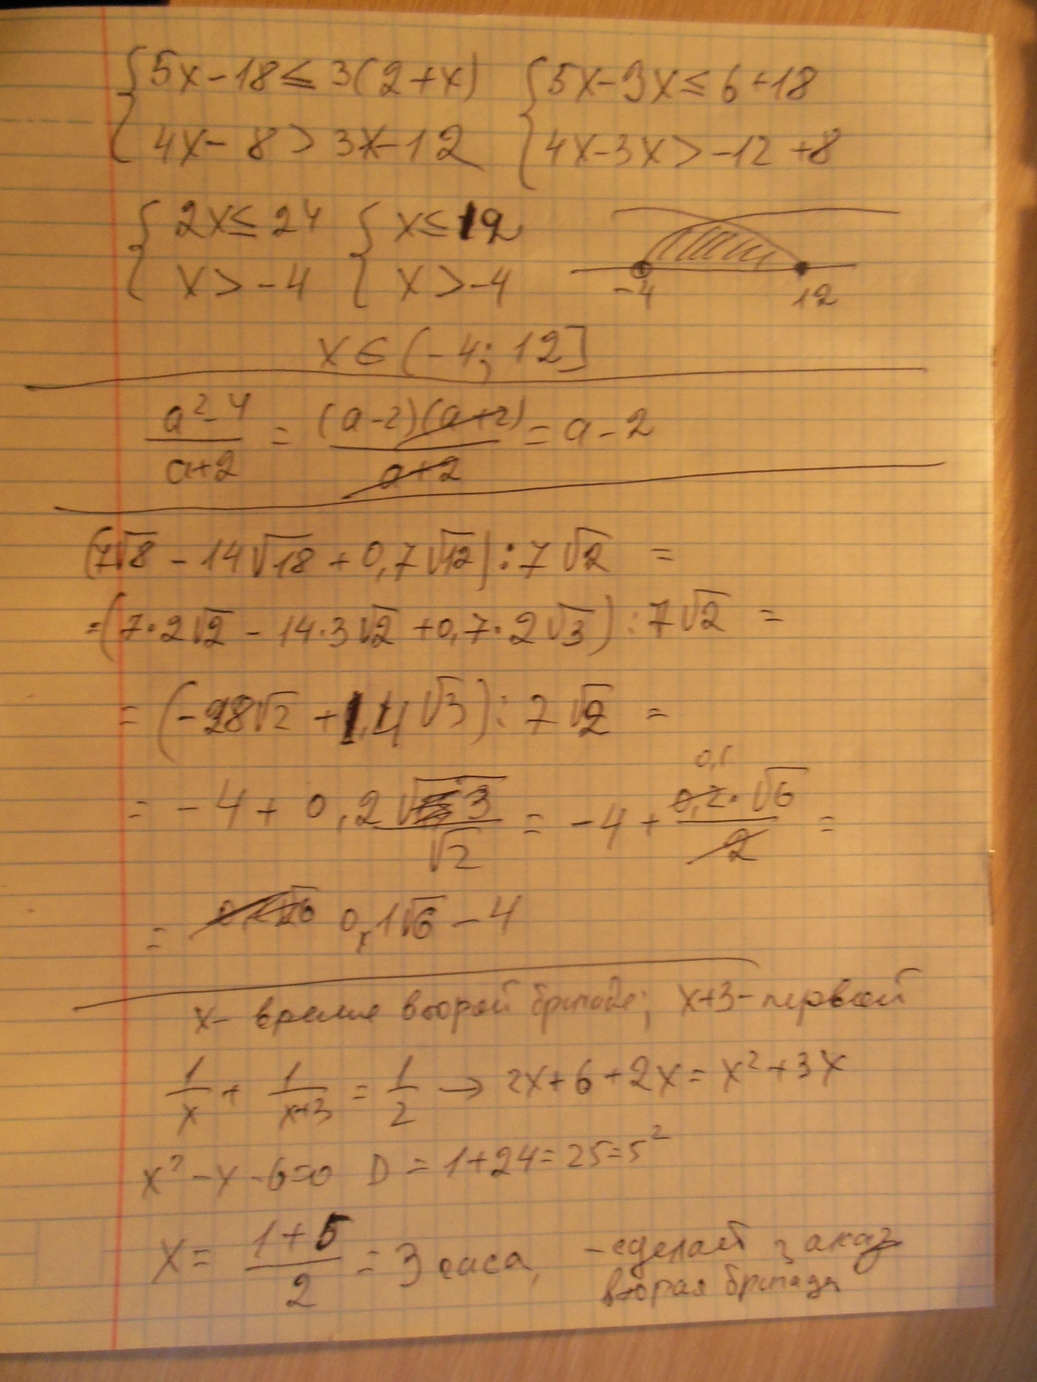 {5x-18≤3(2+x) {5x-3x≤6+18
{4x-8>3x-12 {4x-3x>-12+8
{2x≤24 {x≤12
{x>-4 {x>-4
-4 12
x∈(-4;12]
a²-4/a+2 = (a-2)(a+2)/a+2 = a-2
(7√8 - 14√18 + 0,7√12) : 7√2 =
=(7·2√2 - 14·3√2 + 0,7·2√3) : 7√2 =
= (-28√2 + 1,4√3) : 7√2 =
= -4 + 0,2√3/√2 = -4 + 0,2·√6/2 =
= 0,1√6 - 4
x- время второй бригаде; x+3-первой
1/x + 1/x+3 = 1/2 → 2x+6+2x=x²+3x
x²-x-6=0 D=1+24=25=5²
x= 1+5/2 = 3 часа, -сделает заказ
вторая бригада